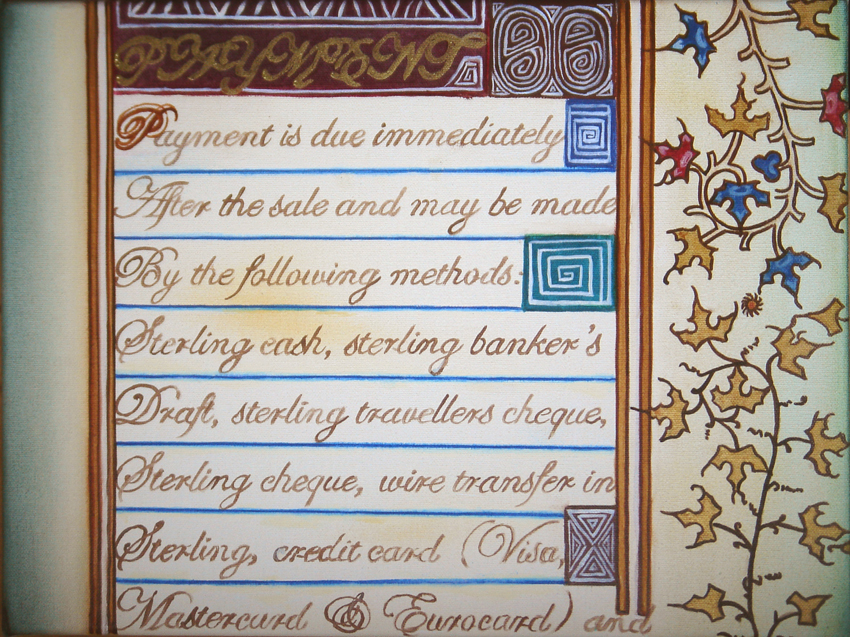 PAYMENT
Payment is due immediately
After the sale and may be made
By the following methods:
Sterling cash, sterling banker's
Draft, sterling travellers cheque,
Sterling cheque, wire transfer in
Sterling, credit card (Visa,
Mastercard & Eurocard) and